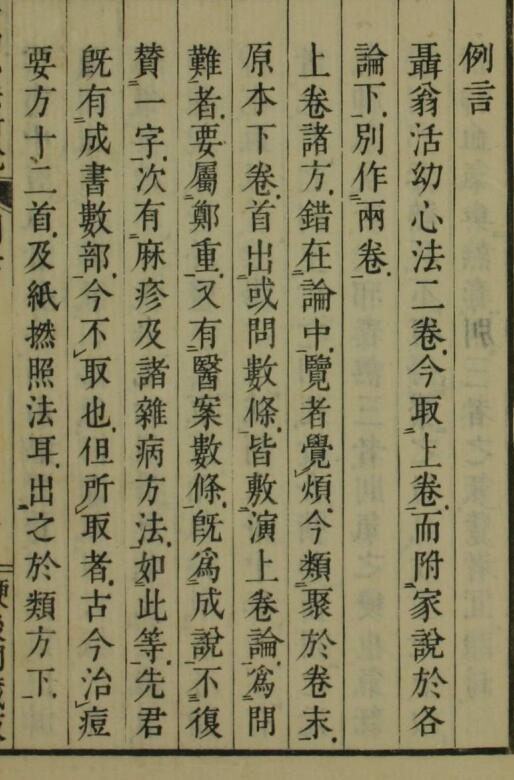 例言
聶翁活幼心法二卷今取上卷而附家說於各
論下別作兩卷
上卷諸方錯在論中覽者覺煩今類聚於卷末
原本下卷首出或問數條皆敷演上卷論為問
難者要屬鄭重又有醫案數條既為成說不復
贊一字次有麻疹及諸雜病方法如此等先君
既有成書數部今不取也但所取者古今治痘
要方十二首及紙撚照法耳出之於類方下